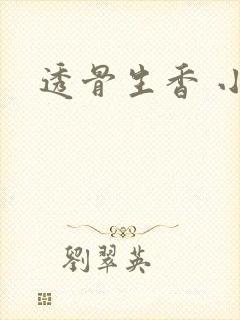 透骨生香 小
劉翠英